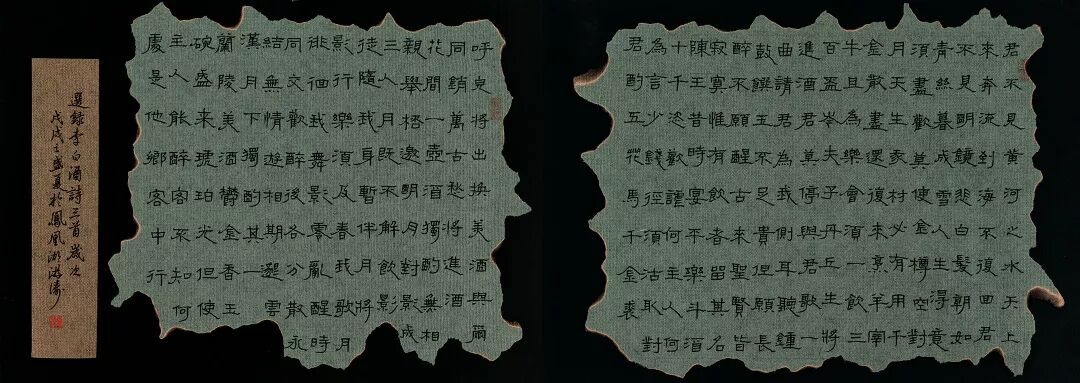 君不見黄河之水天上
來奔流到海不復回君
不見明鏡悲白髮朝如
青絲暮成雪人生得意
須盡歡莫使金樽空對
月天生我材必有用千
金散盡還復來烹羊宰
牛且為樂會須一飲三
百盃岑夫子丹丘生將
進酒君莫停與君歌一
曲請君為我側耳聽鐘
鼓饌玉不足貴但願長
醉不願醒古來聖賢皆
寂寞惟有飲者留其名
陳王昔時宴平樂斗酒
十千恣歡謔主人何
為言少錢徑須沽取對
君酌五花馬千金裘
呼兒將出換美酒與爾
同銷萬古愁將進酒
花間一壺酒獨酌無相
親舉桮邀明月對影成
三人月既不解飲影
徒隨我身暫伴月將
影行樂須及春我歌月
徘徊我舞影零亂醒時
同交歡醉後各分散永
結無情遊相期邈雲
漢月下獨酌其一
蘭陵美酒鬱金香玉
碗盛来琥珀光但使
主人能醉客不知何
處是他鄉客中行
選錄李白酒詩三首歲次
戊戌之盛夏於鳳凰湖